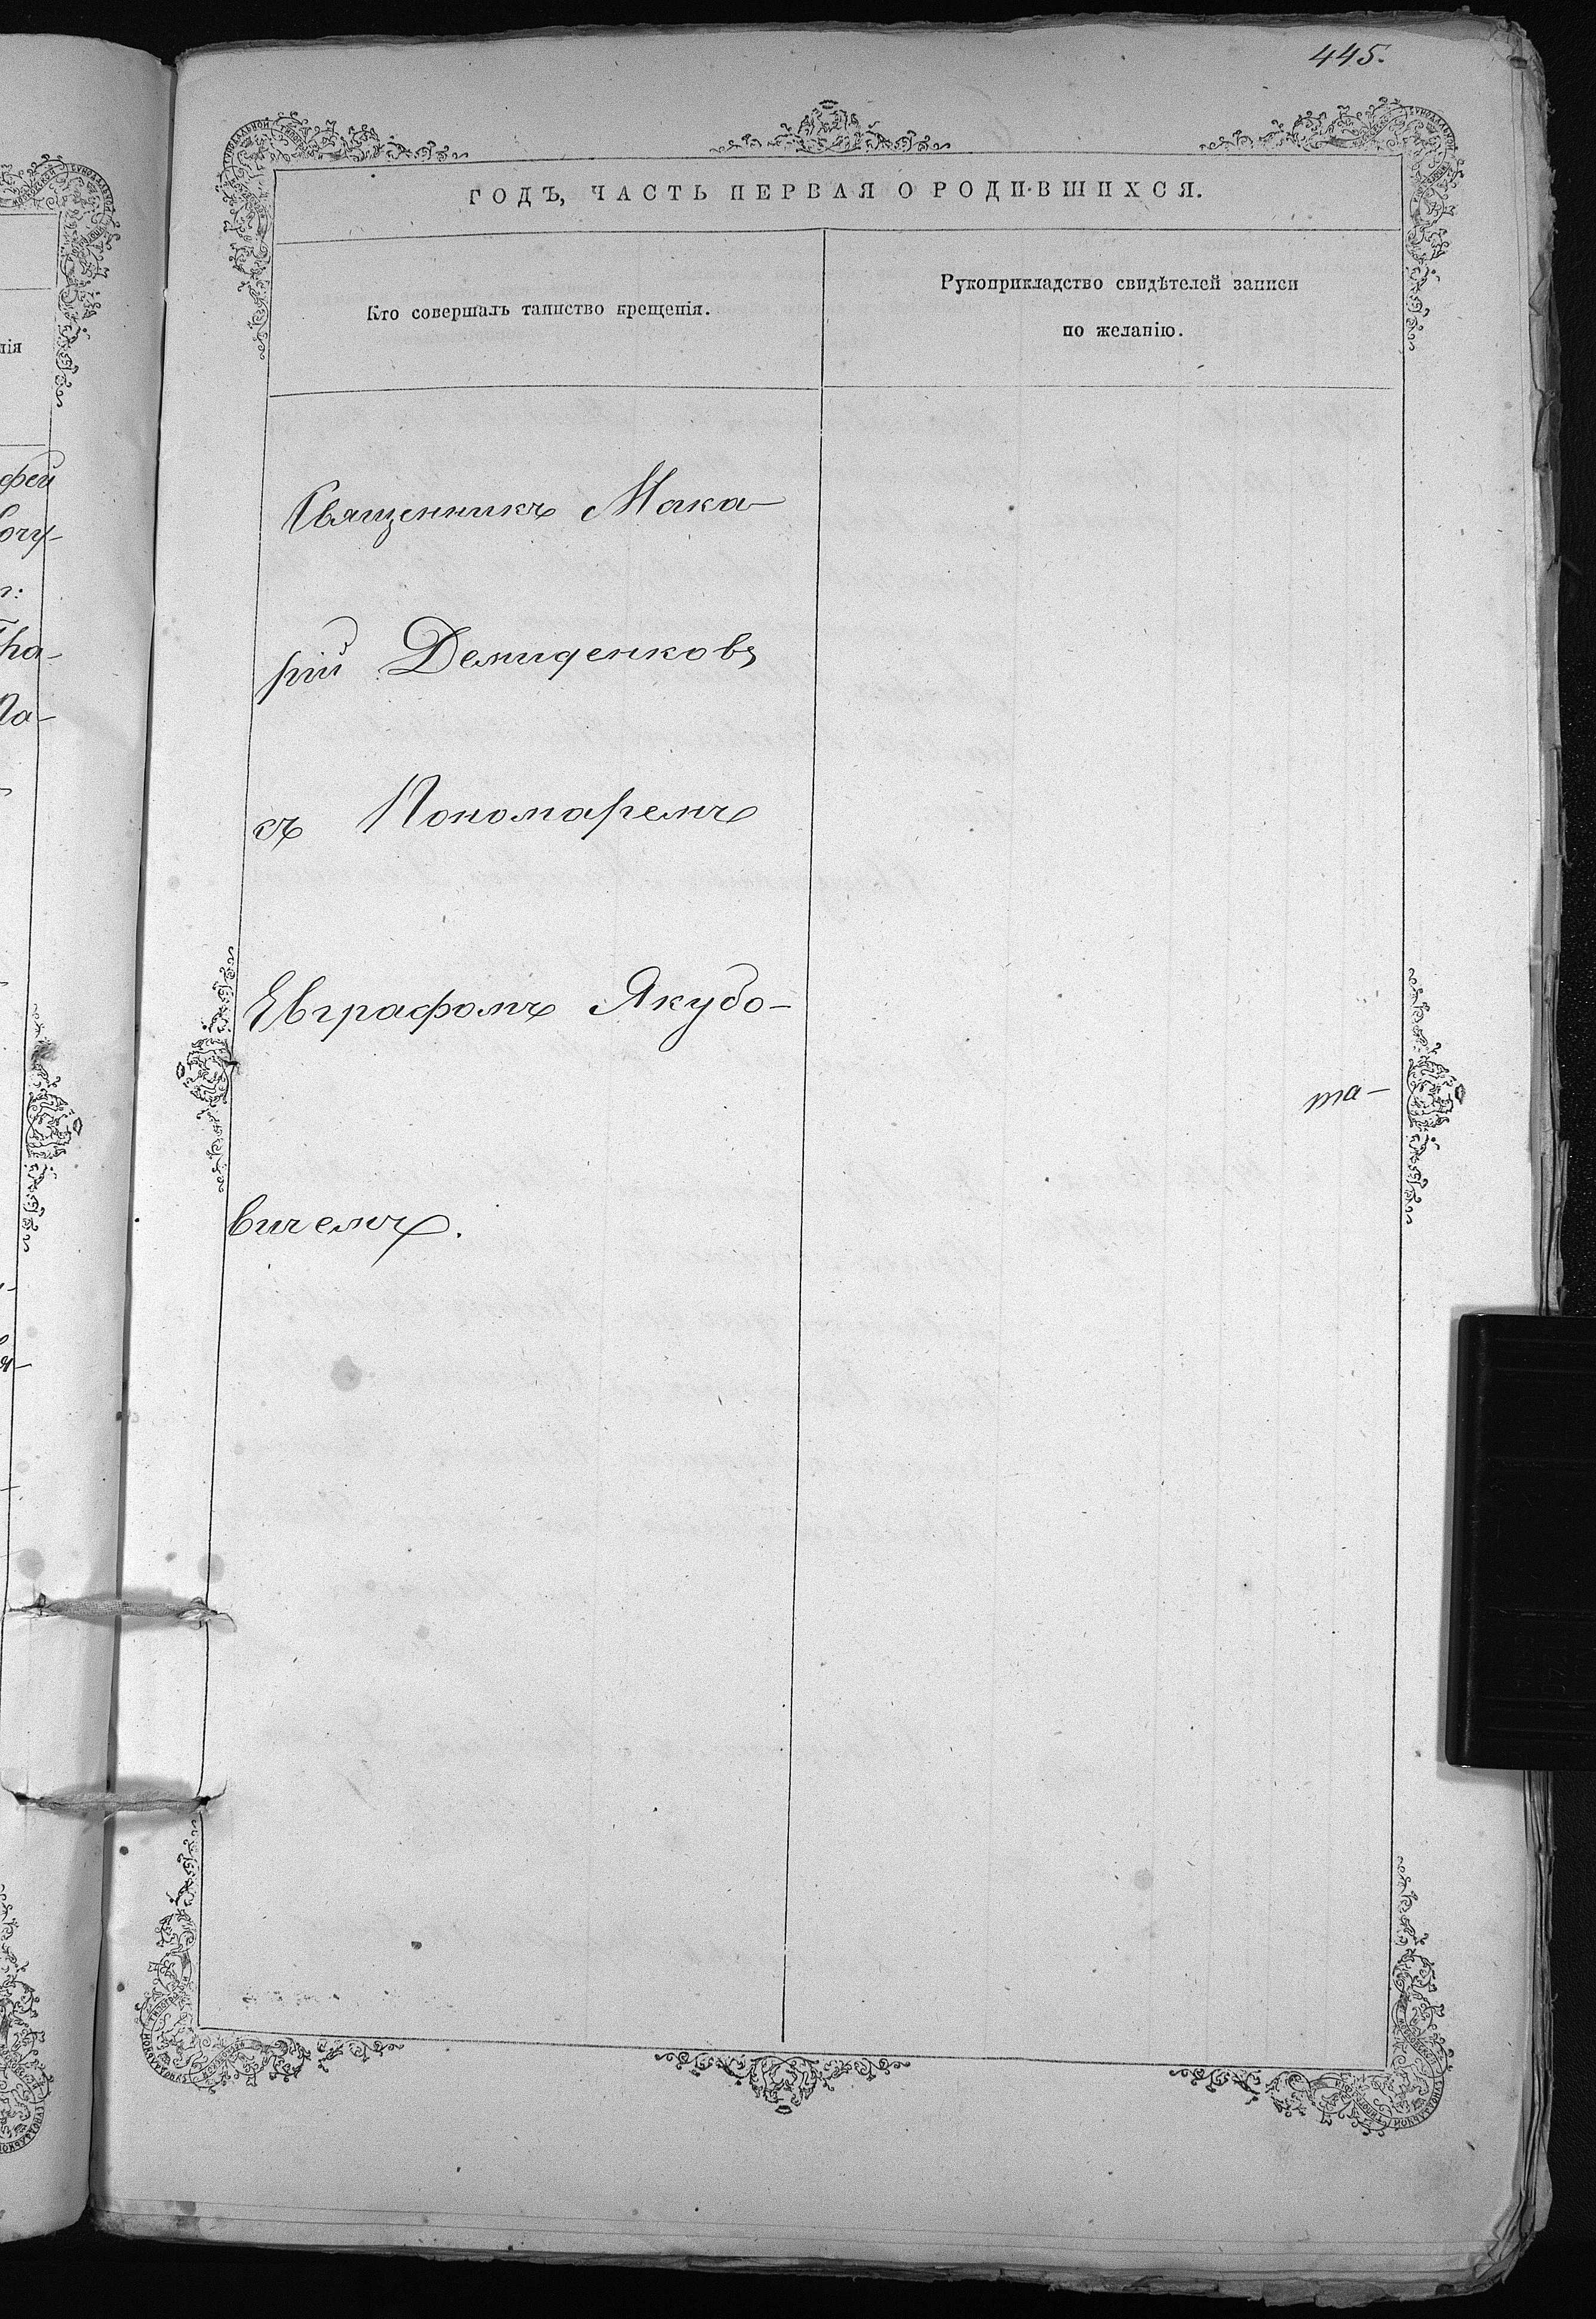 445.
ГОДЪ, ЧАСТЬ ПЕРВАЯ О РОДИВШИХСЯ.
Кто совершалъ таинство крещенія.
Рукоприкладство свидѣтелей записи
по желанію.
Священникъ Мака-
рій Демиденковъ
съ Пономаремъ
Евграфомъ Якубо-
вичемъ.
та-